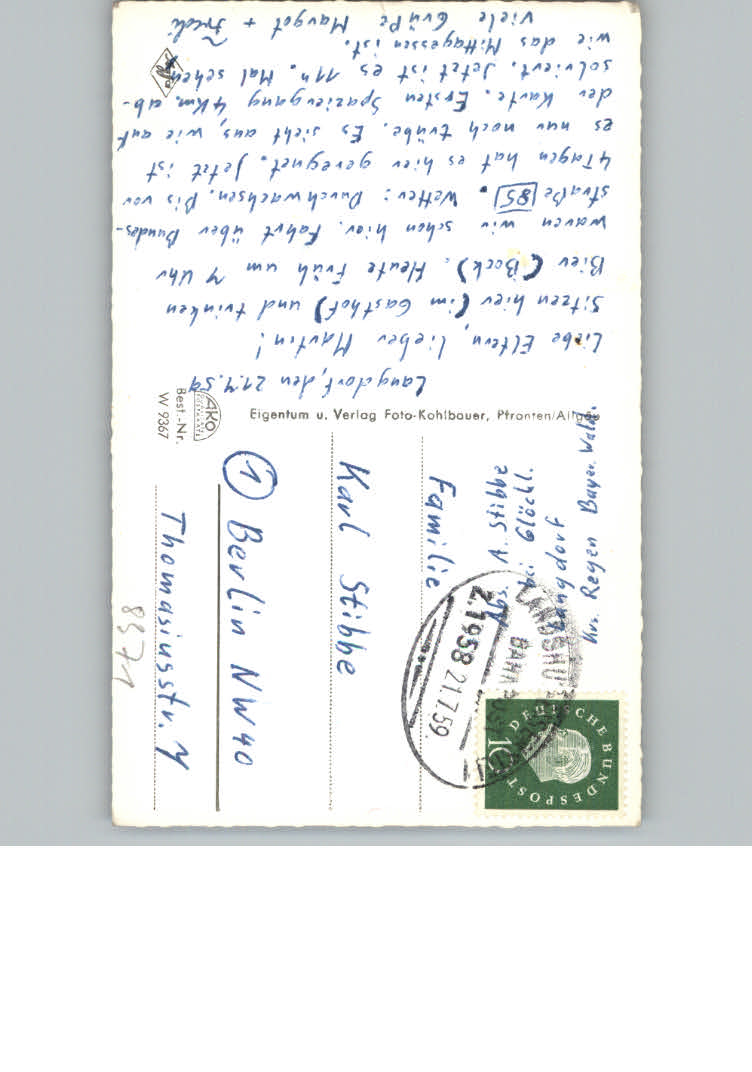 Langdorf, den 21.7.59
Liebe Eltern, lieber Martin!
Sitzen hier (im Gasthof) und trinken
Bier (Bock). Heute früh um 7 Uhr
waren wir schon hier. Fahrt über Bundes-
straße 85. Wetter: Durchwachsen. Bis vor
4 Tagen hat es hier geregnet. Jetzt ist
es nur noch trübe. Es sieht aus, wie auf
der Karte. Ersten Spaziergang 4 Km. ab-
solviert. Jetzt ist es 11h. Mal sehen
wie das Mittagessen ist.
Viele Grüße Margot + Fredi
Agfa
Eigentum u. Verlag Foto-Kohlbauer, Pfronten/Allgäu
AKO
Best.-Nr.
W 9367
Abs. A. Stibbe
bei Glöckl.
Langdorf
Krs. Regen Bayer. Wald.
Familie
Karl Stibbe
1 Berlin NW 40
Thomasiusstr. 7
21.7.59
DEUTSCHE BUNDESPOST
10